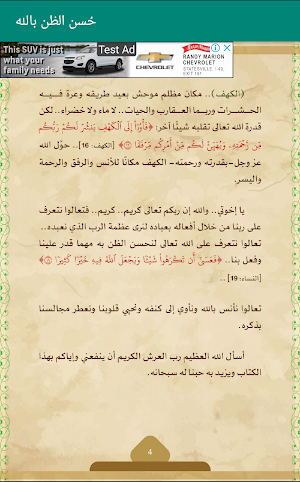 حُسن الظن بالله
This SUV is just what your family needs
Test Ad
CHEVROLET
RANDY MARION
CHEVROLET
STATESVILLE, I-40,
EXIT 151
(الكهف).. مكان مظلم موحش بعيد طريقه وعرة فيه
الحشرات وربما العقارب والحيات.. لا ماء ولا خضراء.. لكن
قدرة الله تعالى تقلبه شيئًا آخر: ﴿فَأْوُوا إِلَى الْكَهْفِ يَنشُرْ لَكُمْ رَبُّكُم
مِّن رَّحْمَتِهِ وَيُهَيِّئْ لَكُم مِّنْ أَمْرِكُم مِّرْفَقًا﴾ [الكهف: 16].. حوّل الله
عز وجل-بقدرته ورحمته- الكهف مكانًا للأنس والرفق والرحمة
واليسر.
يا إخوتي.. والله إن ربكم تعالى كريم.. كريم.. فتعالوا نتعرف
على ربنا من خلال أفعاله بعباده لنرى عظمة الرب الذي نعبده..
تعالوا نتعرف على الله تعالى لنحسن الظن به مهما قدر علينا
وفعل بنا.. ﴿فَعَسَىٰ أَن تَكْرَهُوا شَيْئًا وَيَجْعَلَ اللَّهُ فِيهِ خَيْرًا كَثِيرًا ١٩﴾
[النساء: 19] ..
تعالوا نأنس بالله ونأوي إلى كنفه ونحيي قلوبنا ونعطر مجالسنا
بذكره.
أسأل الله العظيم رب العرش الكريم أن ينفعني وإياكم بهذا
الكتاب ويزيد به حبنا له سبحانه.
4